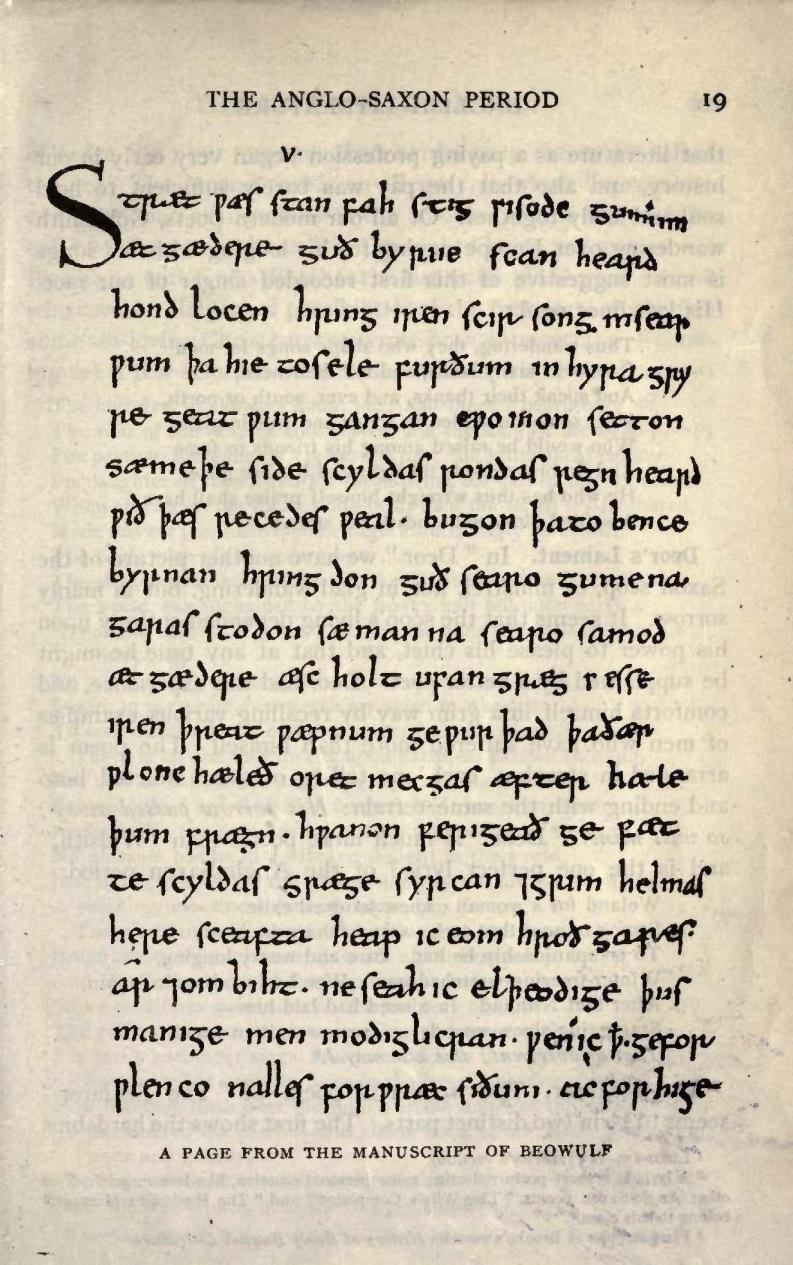 THE ANGLO-SAXON PERIOD 19
V·
Stræt ƿæs stan fah stig ƿisode gumum
æt gædere guð byrne scan heard
hond locen hring iren scir song in sear
ƿum þa hie to sele furðum in hyra gry
re geat ƿum gangan cƿomon setton
sæmeþe side scyldas rondas regn heard
ƿið þæs recedes ƿeal· bugon þa to bence
byrnan hring don guð searo gumena
garas stodon sæ man na searo samod
æt gædere æsc holt ufan græg
iren þreat ƿæpnum ge ƿur þad þa ðær
ƿlonc hæleð oret mecgas æfter hæle
þum frægn· hƿanon ferigeað ge fæt
te scyldas græge syrcan ⁊grim helmas
here sceafta heap ic eom hroð gares
ar ⁊om biht· ne seah ic elþeodige þus
manige men modiglicran· ƿen ic ꝥ·ge for
ƿlen co nalles for ƿræc siðum· ac for hige
A PAGE FROM THE MANUSCRIPT OF BEOWULF